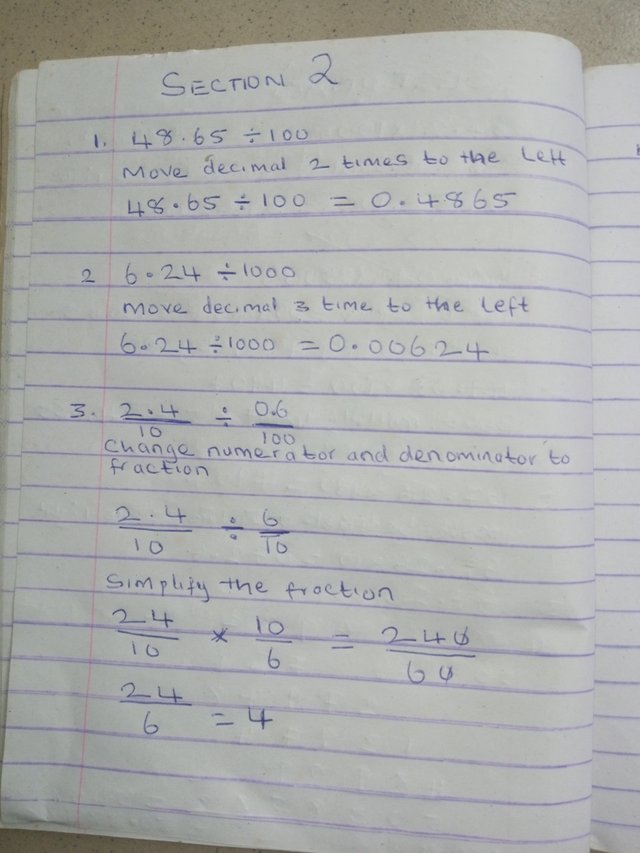 SECTION 2
1. 48.65 ÷ 100
Move decimal 2 times to the left
48.65 ÷ 100 = 0.4865
2 6.24 ÷ 1000
move decimal 3 time to the left
6.24 ÷ 1000 = 0.00624
3. 2.4/10 ÷ 0.6/100
change numerator and denominator to
fraction
2.4/10 ÷ 6/10
simplify the fraction
24/10 × 10/6 = 240/60
24/6 = 4